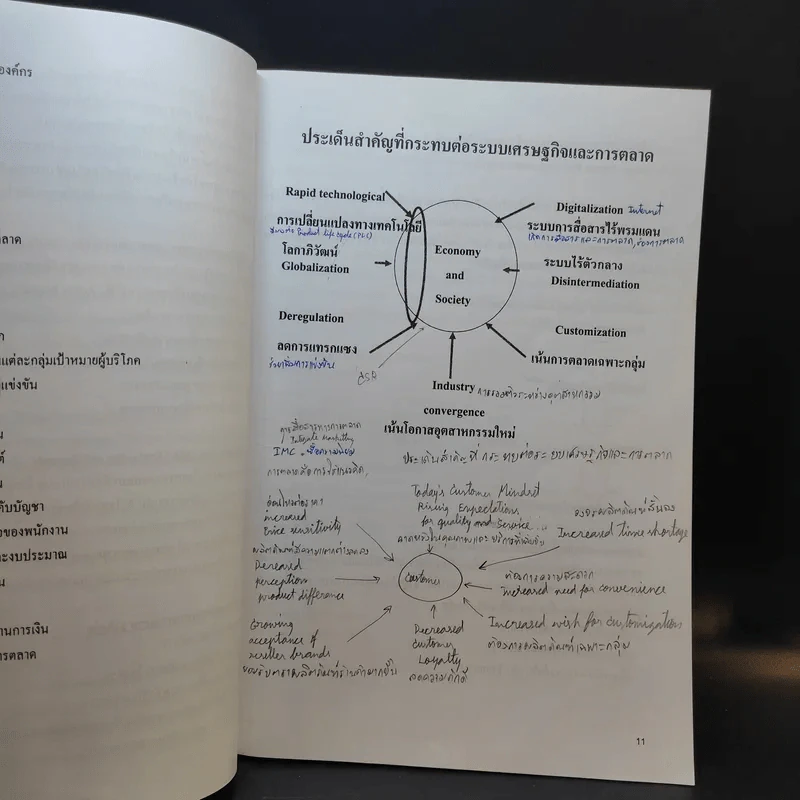 องค์กร
ตลาด
แต่ละกลุ่มเป้าหมายผู้บริโภค
คู่แข่งขัน
คับบัญชา
ของพนักงาน
ะงบประมาณ
านการเงิน
ารตลาด
ประเด็นสำคัญที่กระทบต่อระบบเศรษฐกิจและการตลาด
Rapid technological
การเปลี่ยนแปลงทางเทคโนโลยี
Product life cycle (PLC)
โลกาภิวัฒน์
Globalization
Deregulation
ลดการแทรกแซง
Economy
and
Society
Digitalization Internet
ระบบการสื่อสารไร้พรมแดน
ระบบไร้ตัวกลาง
Disintermediation
Customization
เน้นการตลาดเฉพาะกลุ่ม
CSR
Industry
convergence
เน้นโอกาสอุตสาหกรรมใหม่
การสื่อสารทางการตลาด
IMC
ประเด็นสำคัญที่กระทบต่อระบบเศรษฐกิจและการตลาด
Today's Customer Mindset
Rising Expectations
for quality and Service
increased
Price sensitivity
Decreased
perception
product difference
Growing
acceptance of
reseller brands
Customer
Increased time shortage
ต้องการความสะดวก
Increased need for convenience
Increased wish for customization
ต้องการผลิตภัณฑ์เฉพาะกลุ่ม
Decreased
Customer
Loyalty
ลดความภักดี
11